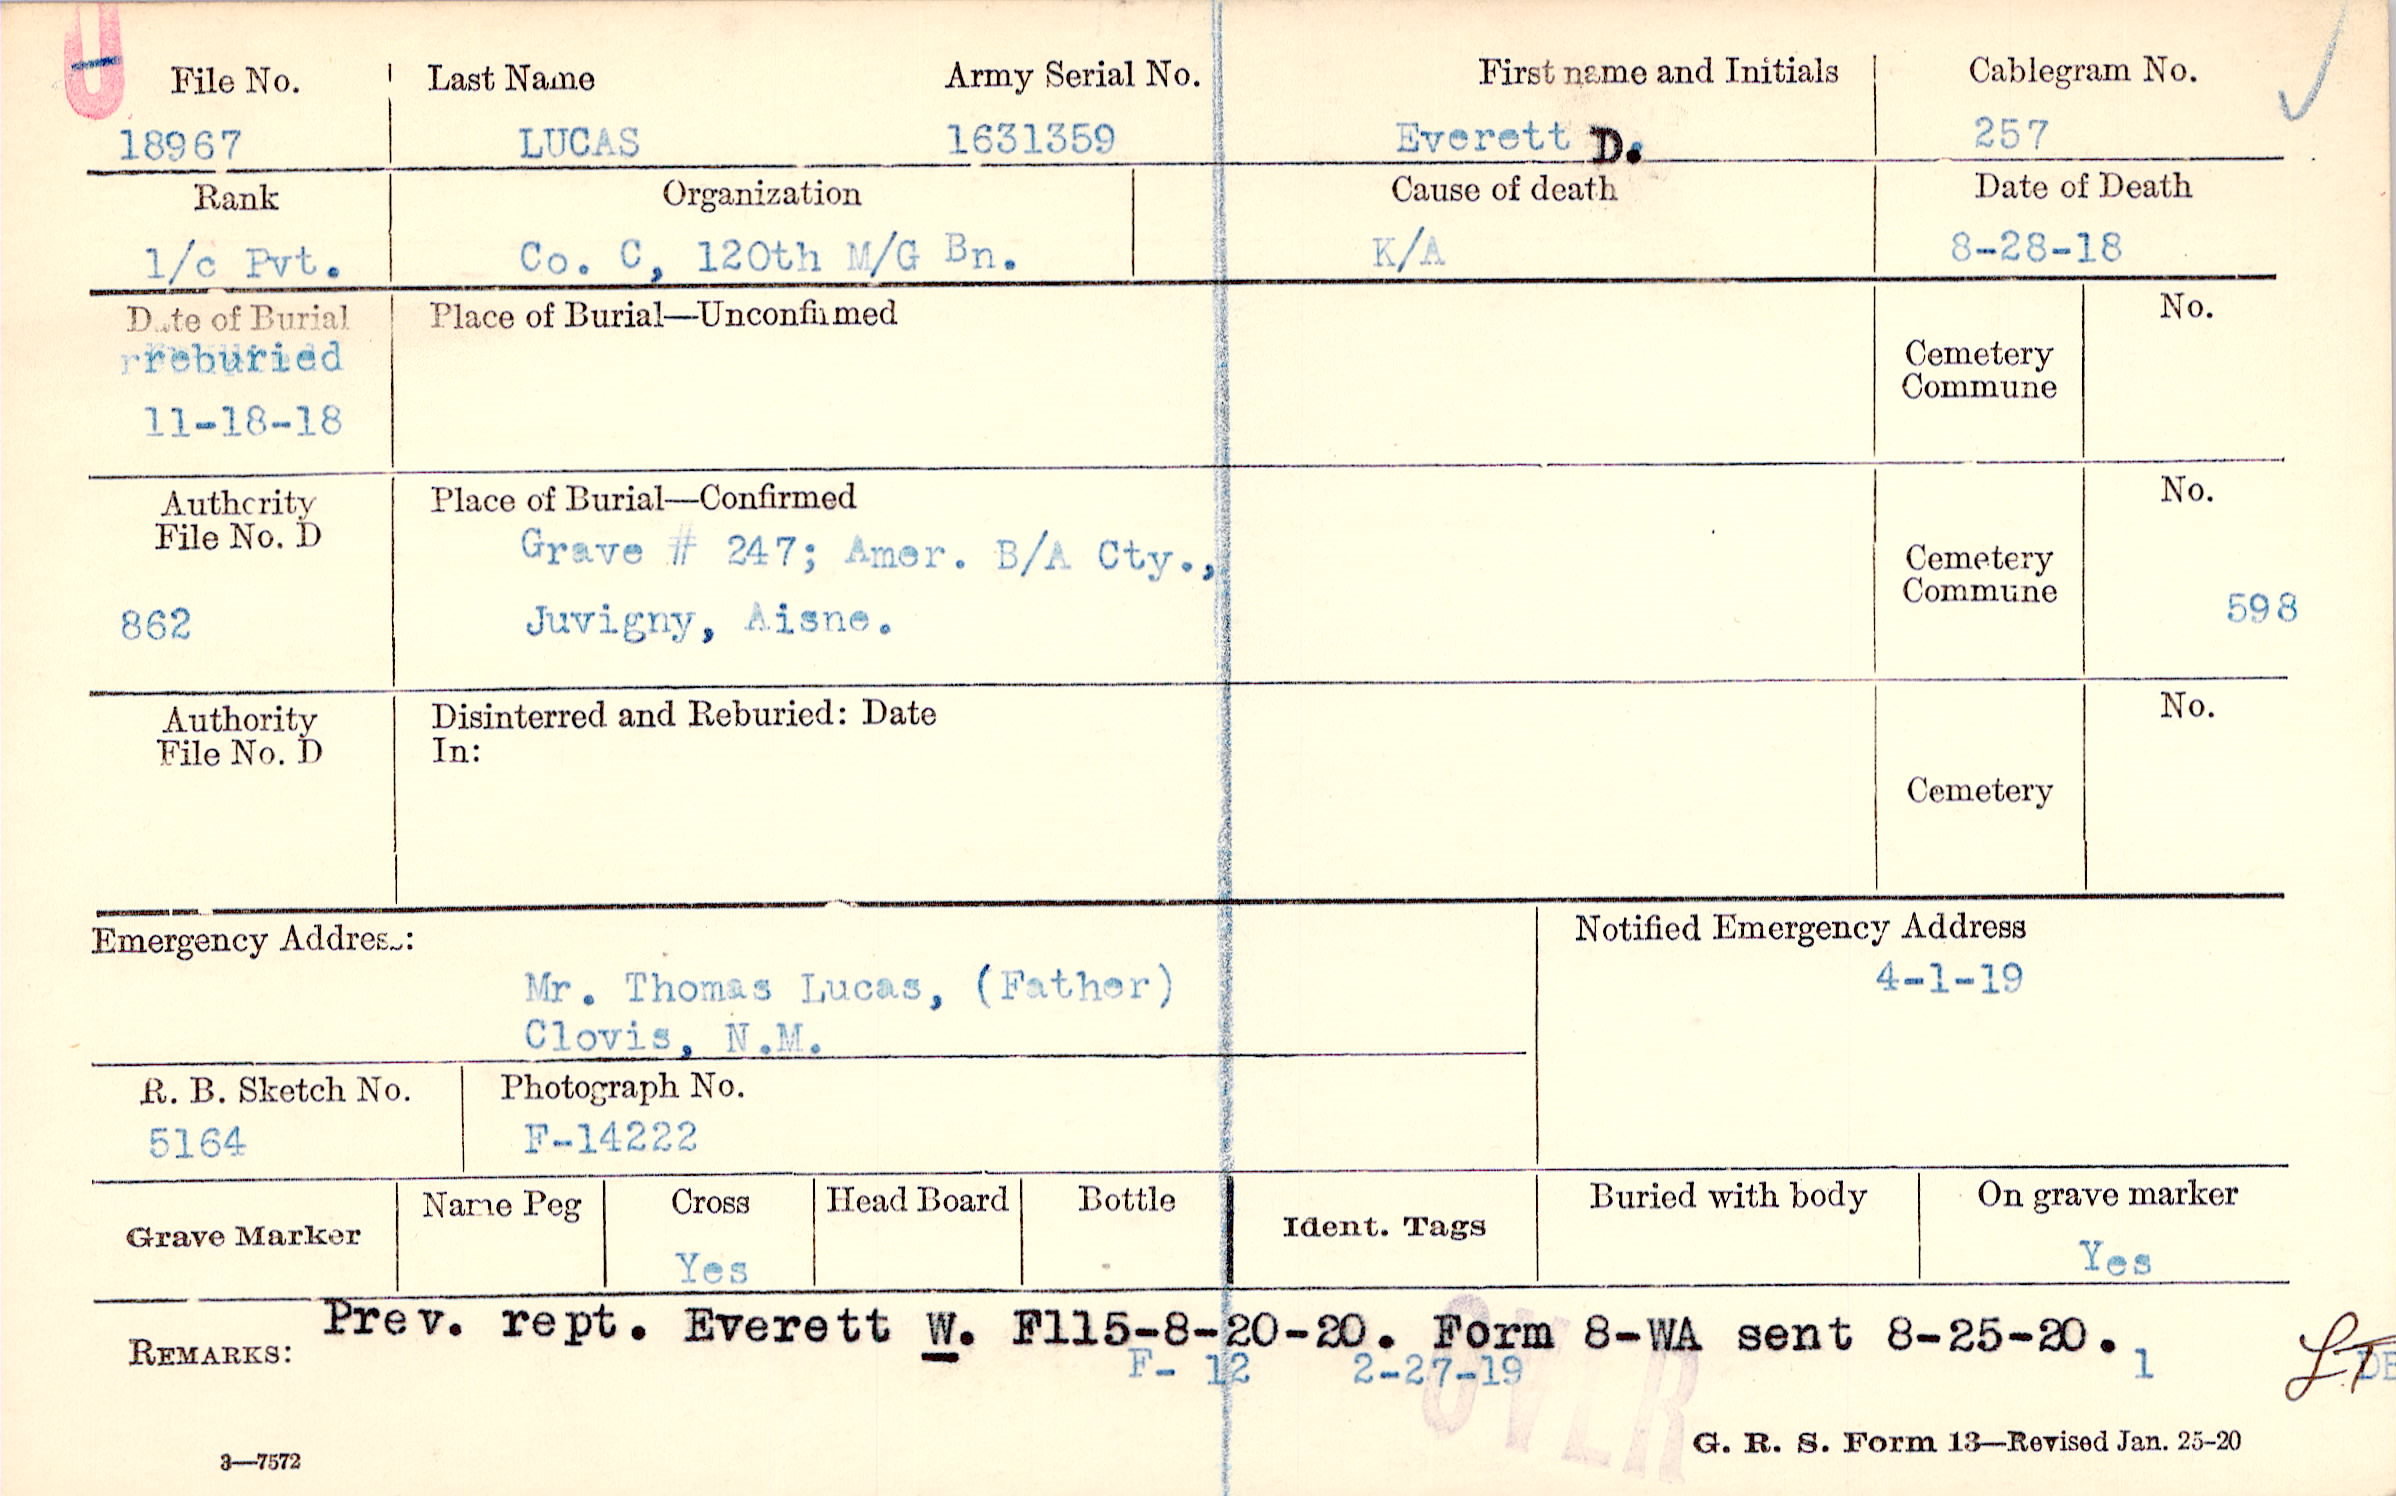 File No. Last Name Army Serial No. First name and Initials Cablegram No.
18967 LUCAS 1631359 Everett D. 257
Rank Organization Cause of death Date of Death
1/c Pvt. Co. C, 120th M/G Bn. K/A 8-28-18
Date of Burial Place of Burial—Unconfirmed No.
reburied
Cemetery
Commune
11-18-18
Authority Place of Burial—Confirmed No.
File No. D
Grave # 247; Amer. B/A Cty.,
Cemetery
Commune
862 Juvigny, Aisne. 598
Authority Disinterred and Reburied: Date No.
File No. D In:
Cemetery
Emergency Address: Notified Emergency Address
Mr. Thomas Lucas, (Father) 4-1-19
Clovis, N.M.
R. B. Sketch No. Photograph No.
5164 F-14222
Grave Marker Name Peg Cross Head Board Bottle Ident. Tags Buried with body On grave marker
Yes Yes
REMARKS: Prev. rept. Everett W. F115-8-20-20. Form 8-WA sent 8-25-20.
F- 12 2-27-19 1
OVER
3—7572 G. R. S. Form 13—Revised Jan. 25-20